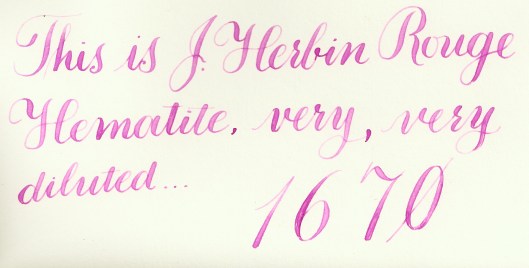 This is J. Herbin Rouge
Hematite, very, very
diluted...
1670